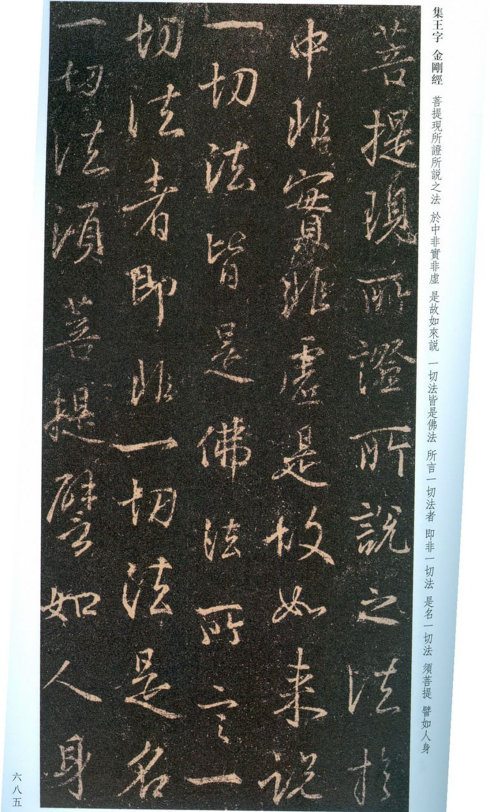 集王字 金剛經 菩提現所證所説之法 於中非實非虛 是故如來説 一切法皆是佛法 所言一切法者 即非一切法 是名一切法 須菩提 譬如人身
菩提現所證所説之法於
中非實非虛是故如来説
一切法皆是佛法所言一
切法者即非一切法是名
一切法須菩提譬如人身
六八五